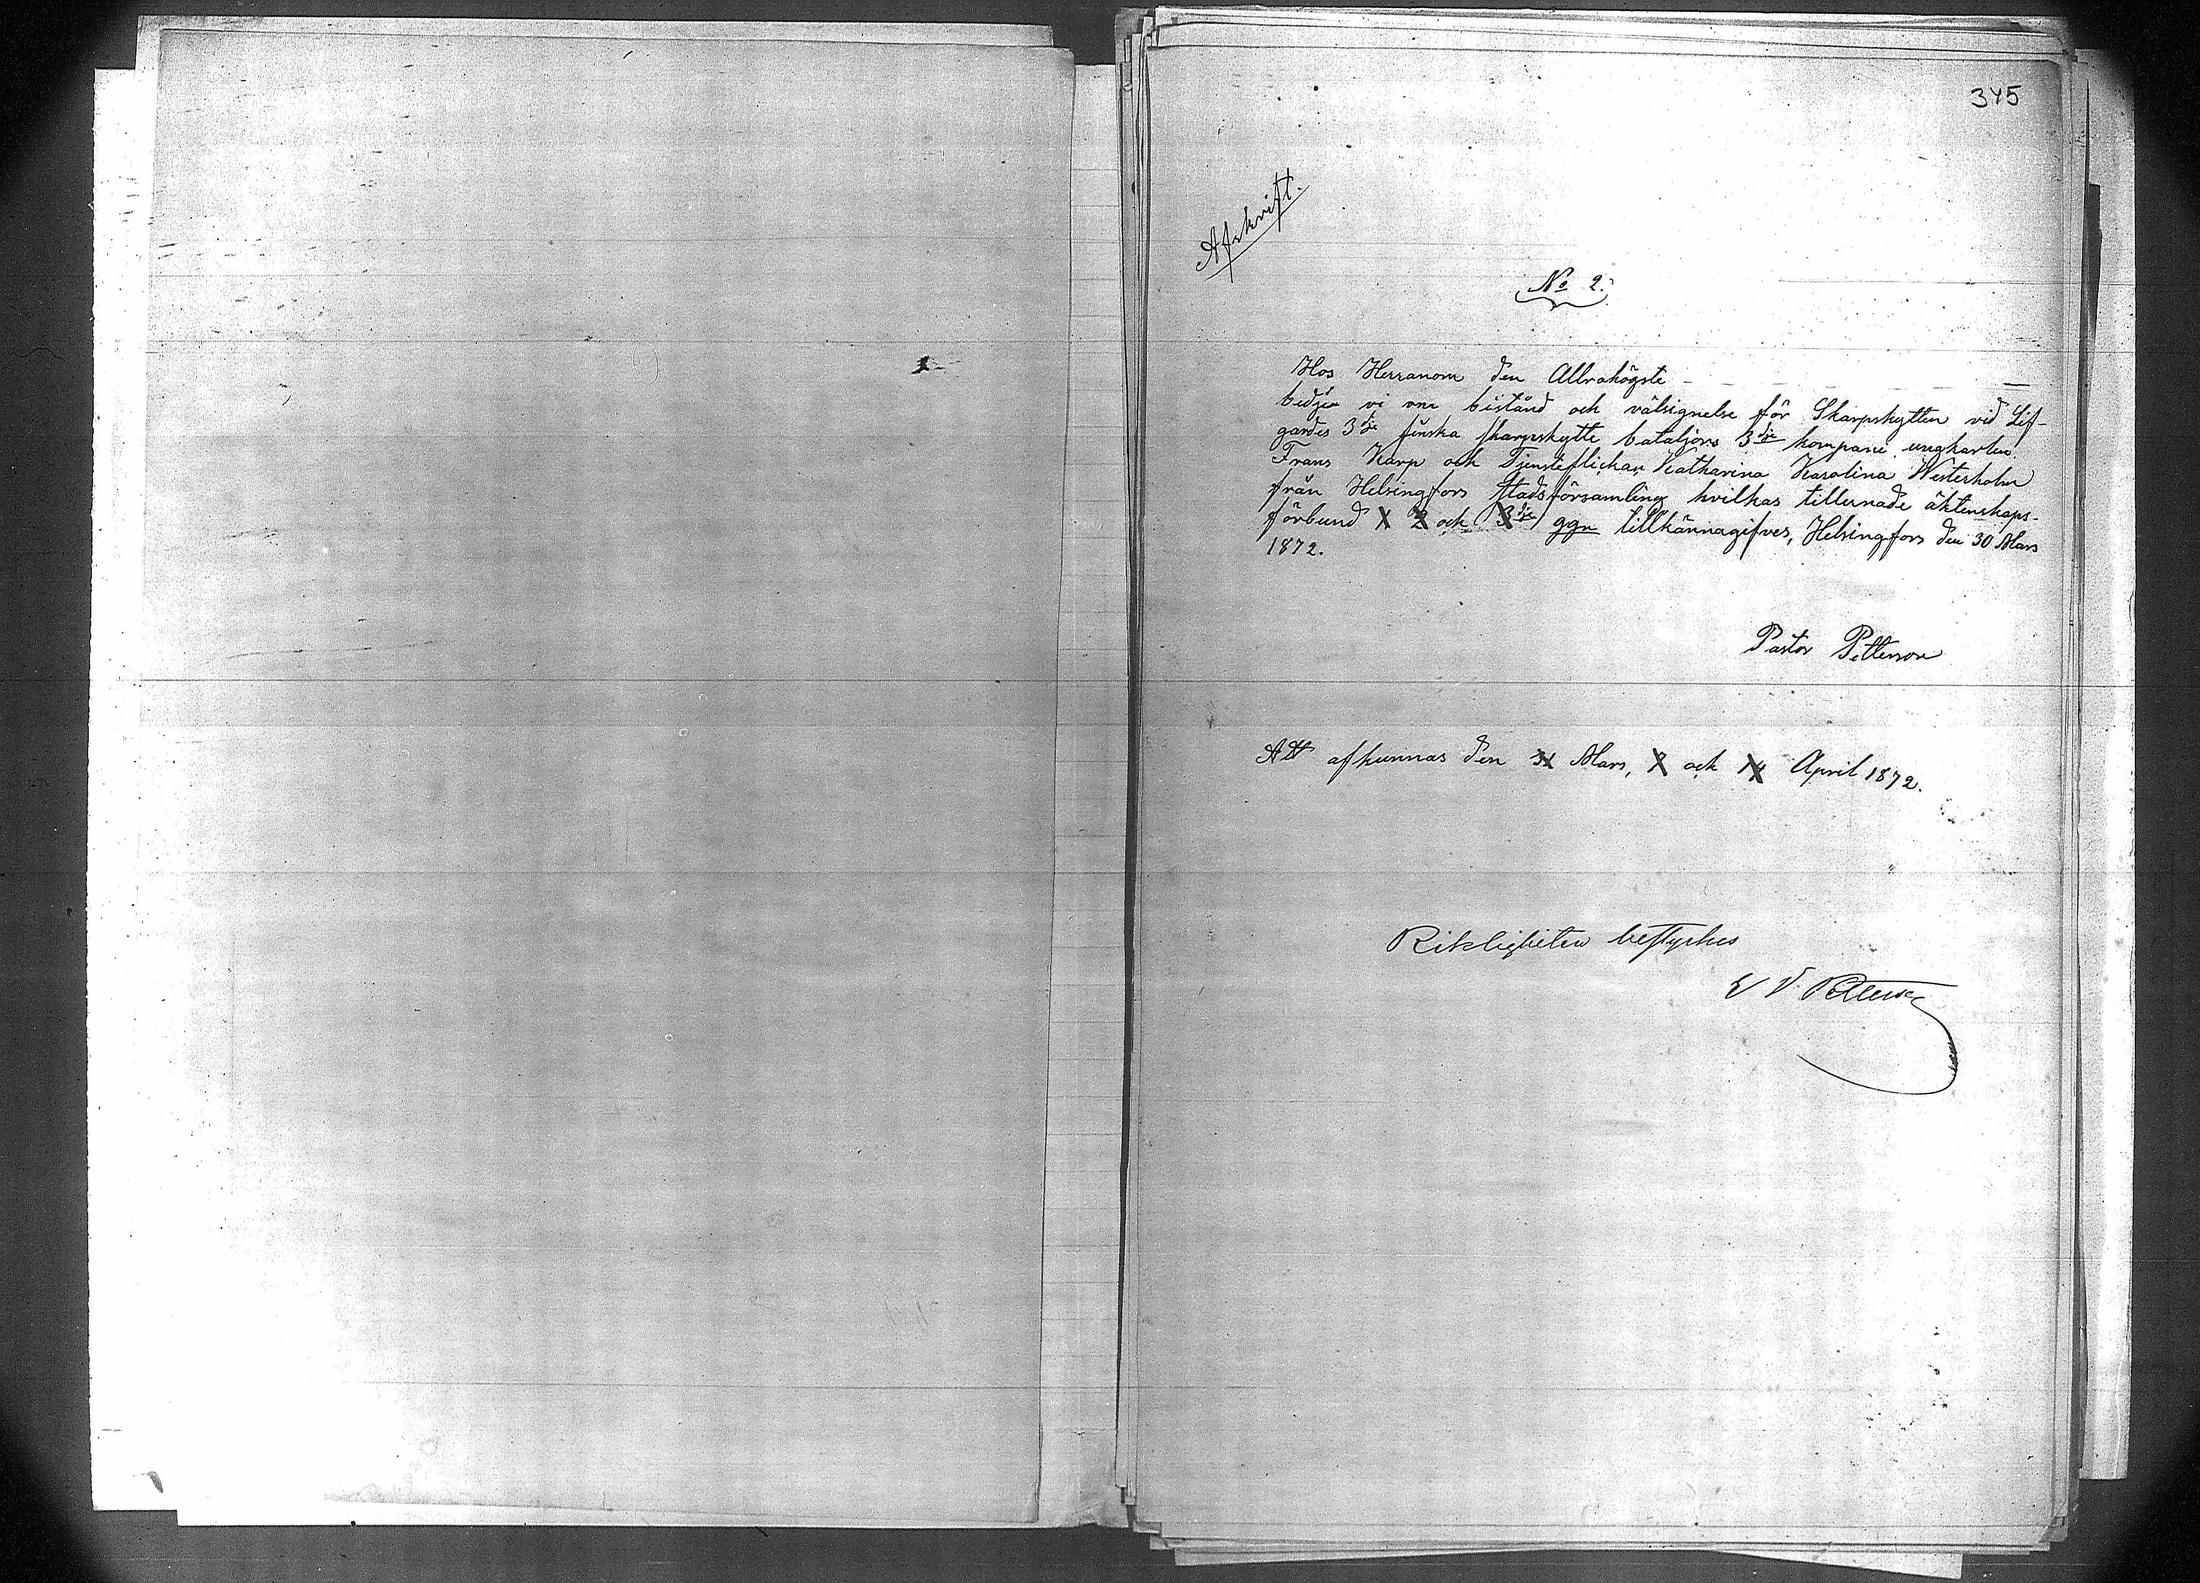 345
Afskrift.
No 2.
Hos Herranom den Allrahögste
bedja vi om bistånd och välsignelse för Skarpskytten vid Lif-
gardes 3dje finska skarpskytte bataljons 3dje kompani ungkarlen
Frans Karp och Tjensteflickan Katharina Karolina Westerholm
från Helsingfors stadsförsamling hvilkas tillernade äktenskaps-
förbund 1 2 och 3dje ggn tillkännagifves, Helsingfors den 30 Mars
1872.
Pastor Petterson
Att afkunnas den 31 Mars, 7 och 14 April 1872.
Riktigheten bestyrkes
E V Petterson